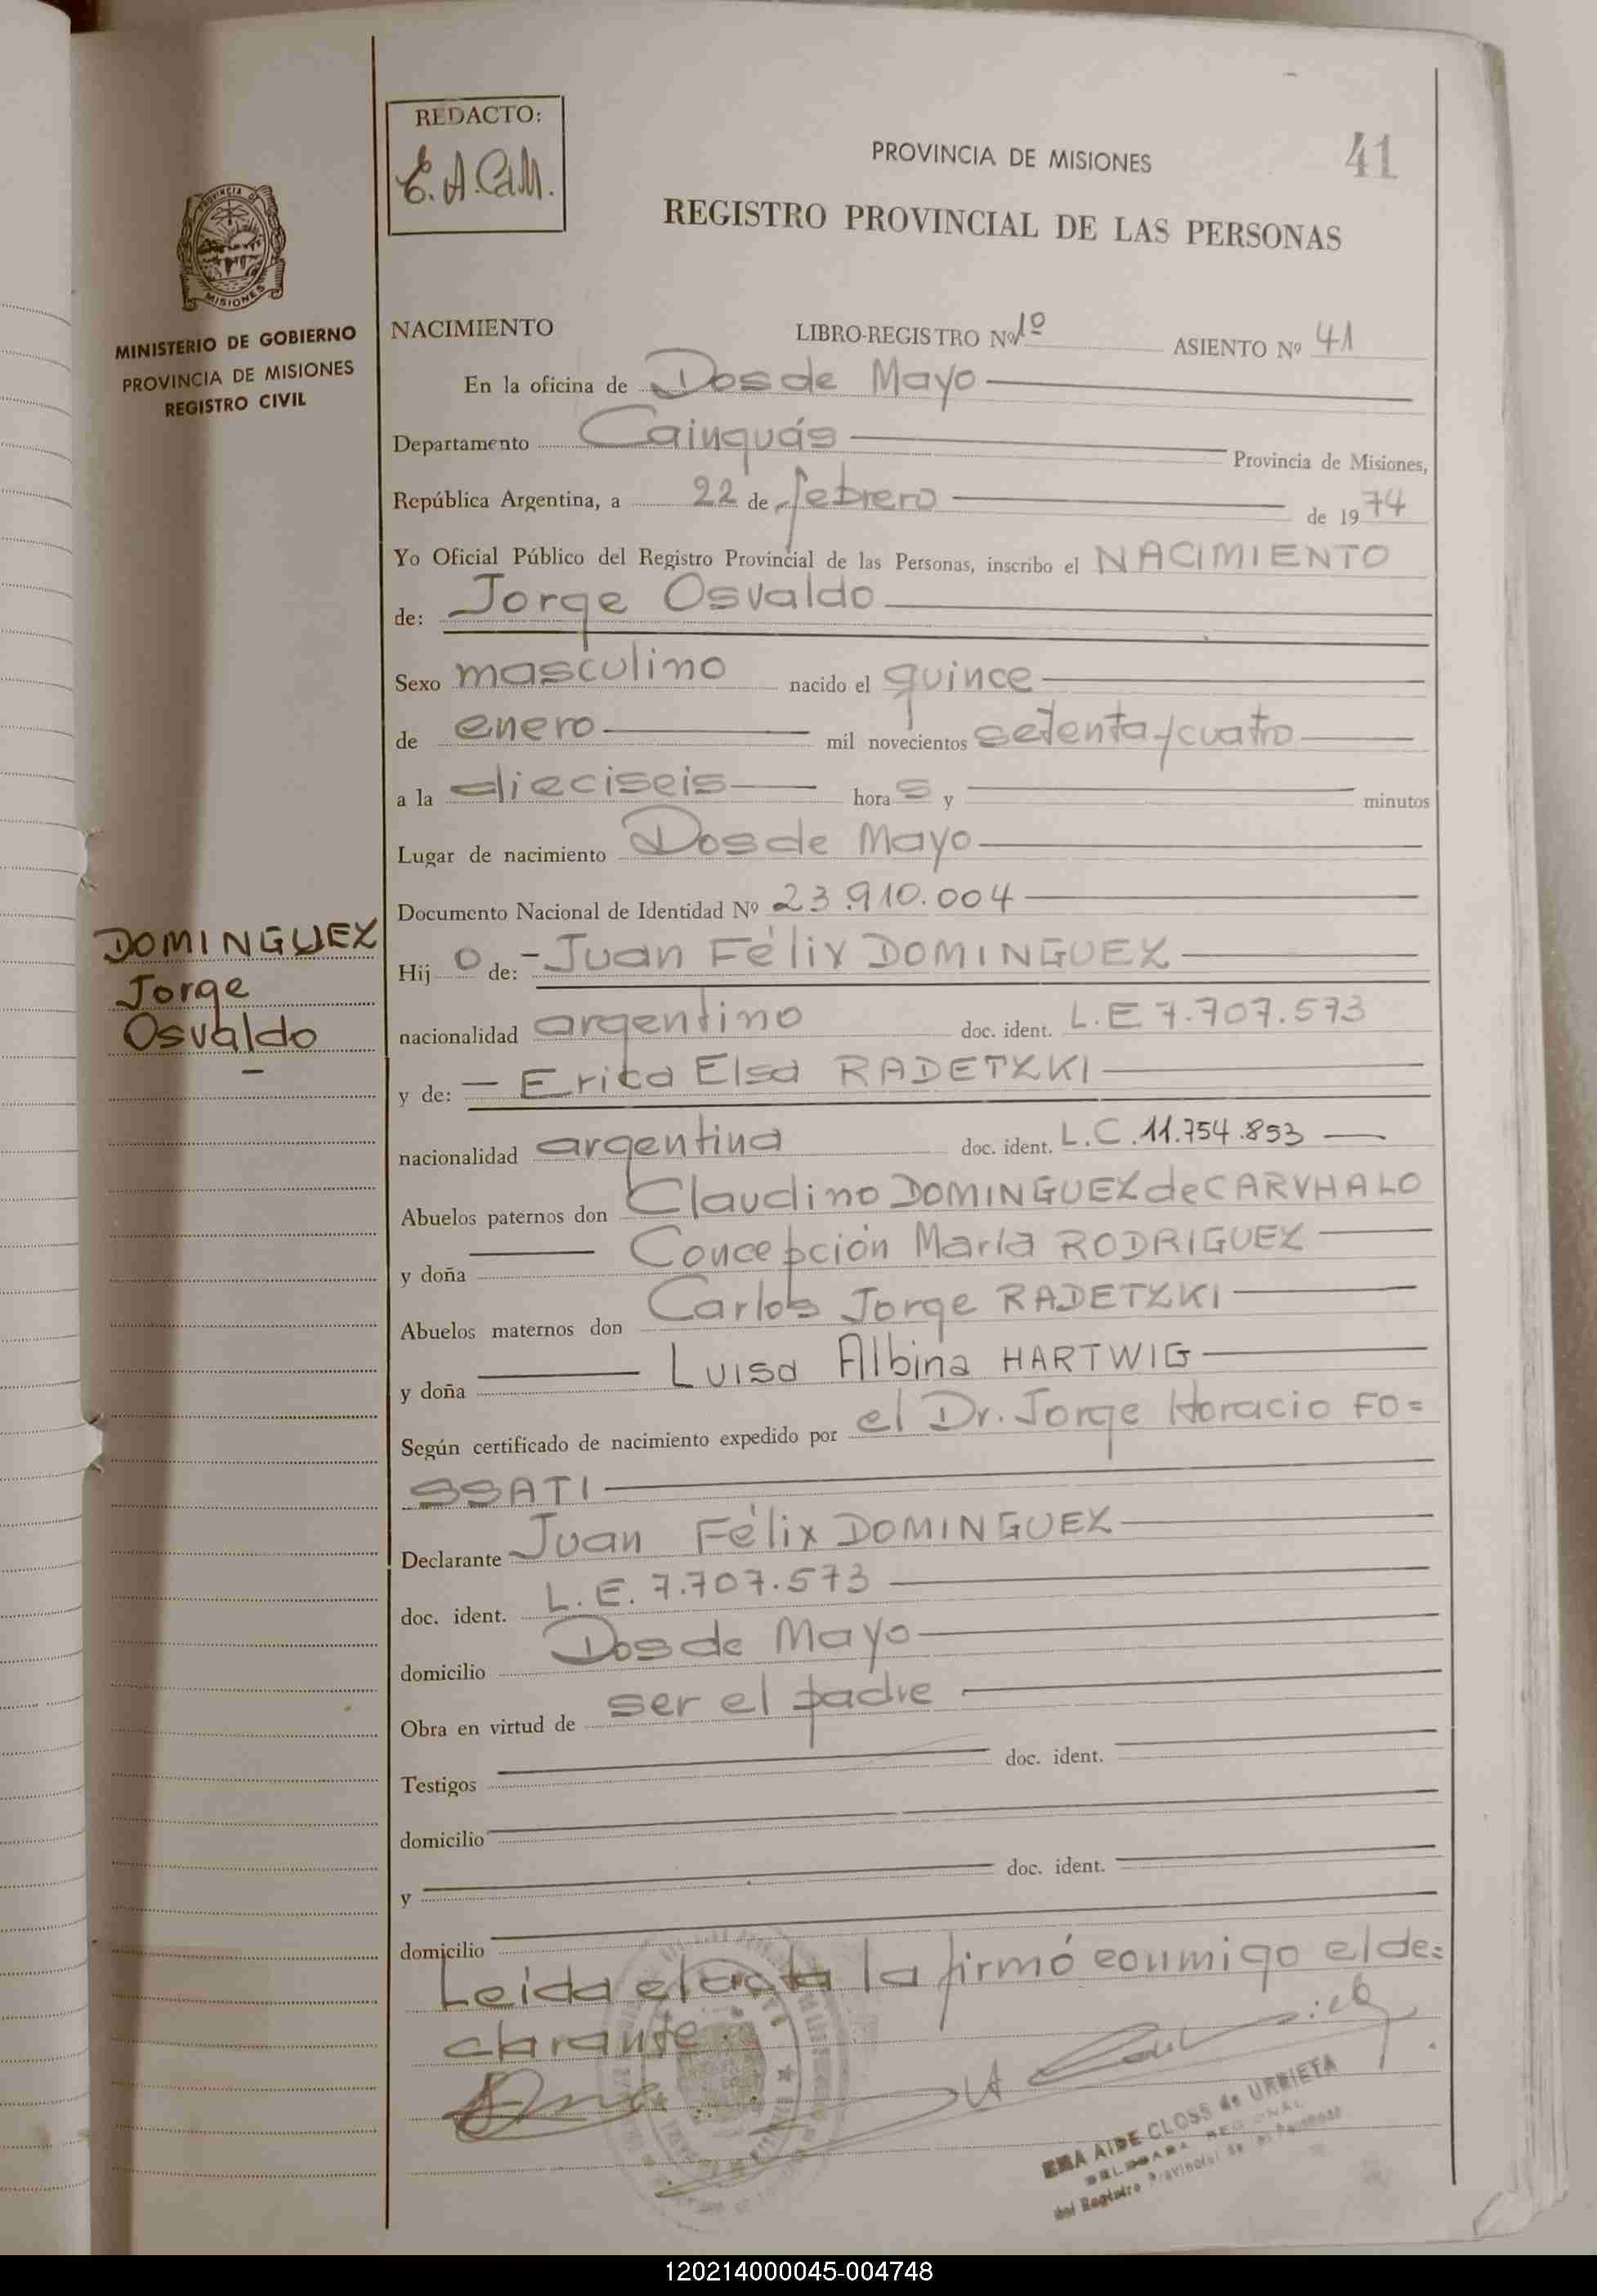 REDACTO:
E. A. CaM.
PROVINCIA DE MISIONES
41
REGISTRO PROVINCIAL DE LAS PERSONAS
PROVINCIA DE
MISIONES
MINISTERIO DE GOBIERNO
PROVINCIA DE MISIONES
REGISTRO CIVIL
NACIMIENTO LIBRO-REGISTRO Nº 1º ASIENTO Nº 41
En la oficina de Dos de Mayo
Departamento Cainguás Provincia de Misiones,
República Argentina, a 22 de febrero de 1974
Yo Oficial Público del Registro Provincial de las Personas, inscribo el NACIMIENTO
de: Jorge Osvaldo
Sexo masculino nacido el quince
de enero mil novecientos setenta y cuatro
a la dieciseis hora s y minutos
Lugar de nacimiento Dos de Mayo
Documento Nacional de Identidad Nº 23.910.004
DOMINGUEZ
Jorge
Osvaldo
Hij o de: - Juan Félix DOMINGUEZ
nacionalidad argentino doc. ident. L.E 7.707.573
y de: - Erica Elsa RADETZKI
nacionalidad argentina doc. ident. L.C. 11.754.853
Abuelos paternos don Claudino DOMINGUEZ de CARVHALO
y doña Concepción María RODRIGUEZ
Abuelos maternos don Carlos Jorge RADETZKI
y doña Luisa Albina HARTWIG
Según certificado de nacimiento expedido por el Dr. Jorge Horacio FO=
SSATI
Declarante Juan Félix DOMINGUEZ
doc. ident. L. E. 7.707.573
domicilio Dos de Mayo
Obra en virtud de ser el padre
Testigos doc. ident.
domicilio
y doc. ident.
domicilio
Leida el acta la firmó conmigo el de=
clarante.
EMA AIDE CLOSS de URRIETA
DELEGADA REGIONAL
del Registro Provincial de las Personas
120214000045-004748